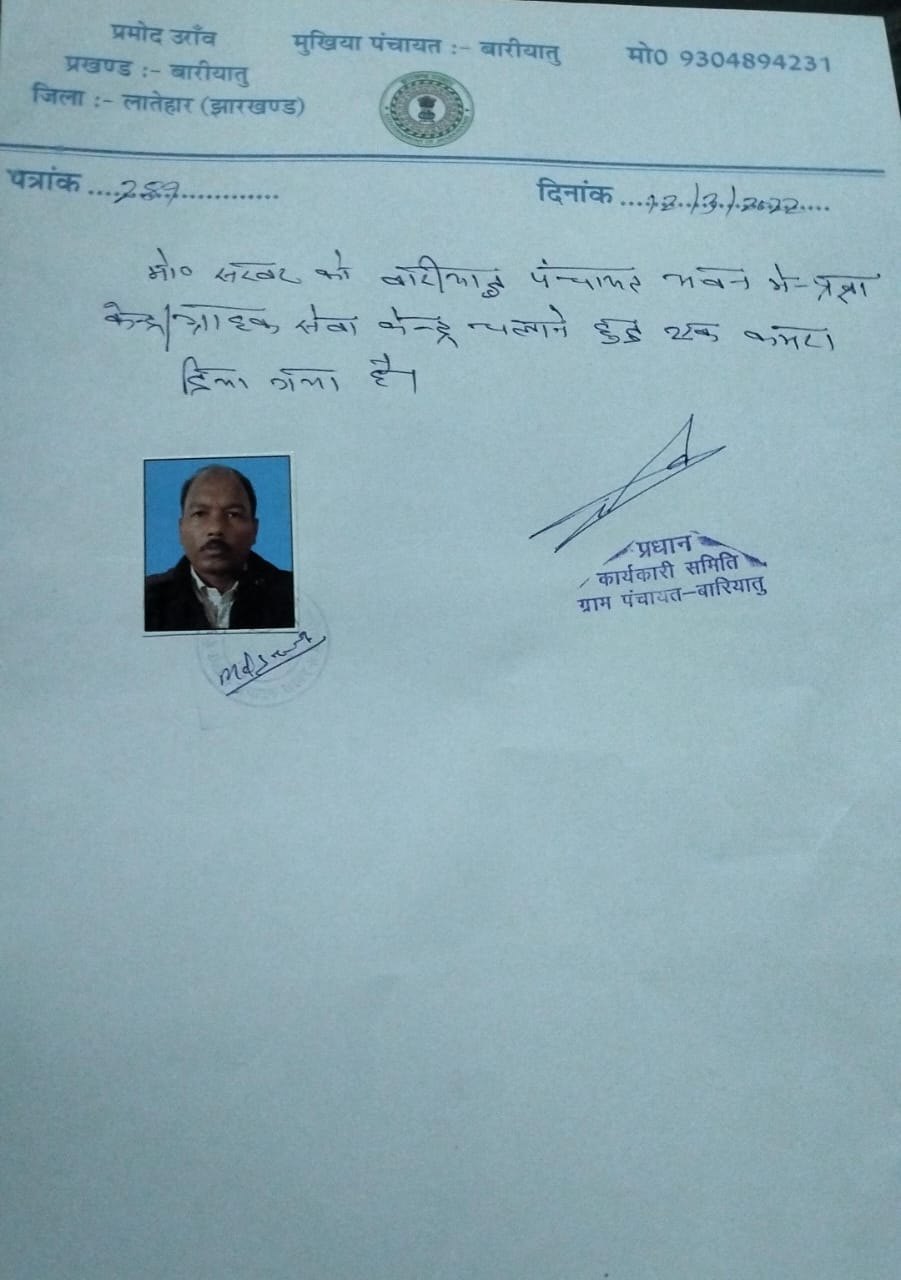 प्रमोद उराँव मुखिया पंचायत :- बारीयातु मो0 9304894231
प्रखण्ड :- बारीयातु
जिला :- लातेहार (झारखण्ड)
पत्रांक ....259............. दिनांक ....12../3./.2022....
मो० सरवर को बारीयातु पंचायत भवन मे प्रज्ञा
केन्द्र/ग्राहक सेवा केन्द्र चलाने हुतु एक कमरा
दिया गया है।
प्रधान
कार्यकारी समिति
ग्राम पंचायत-बारियातु